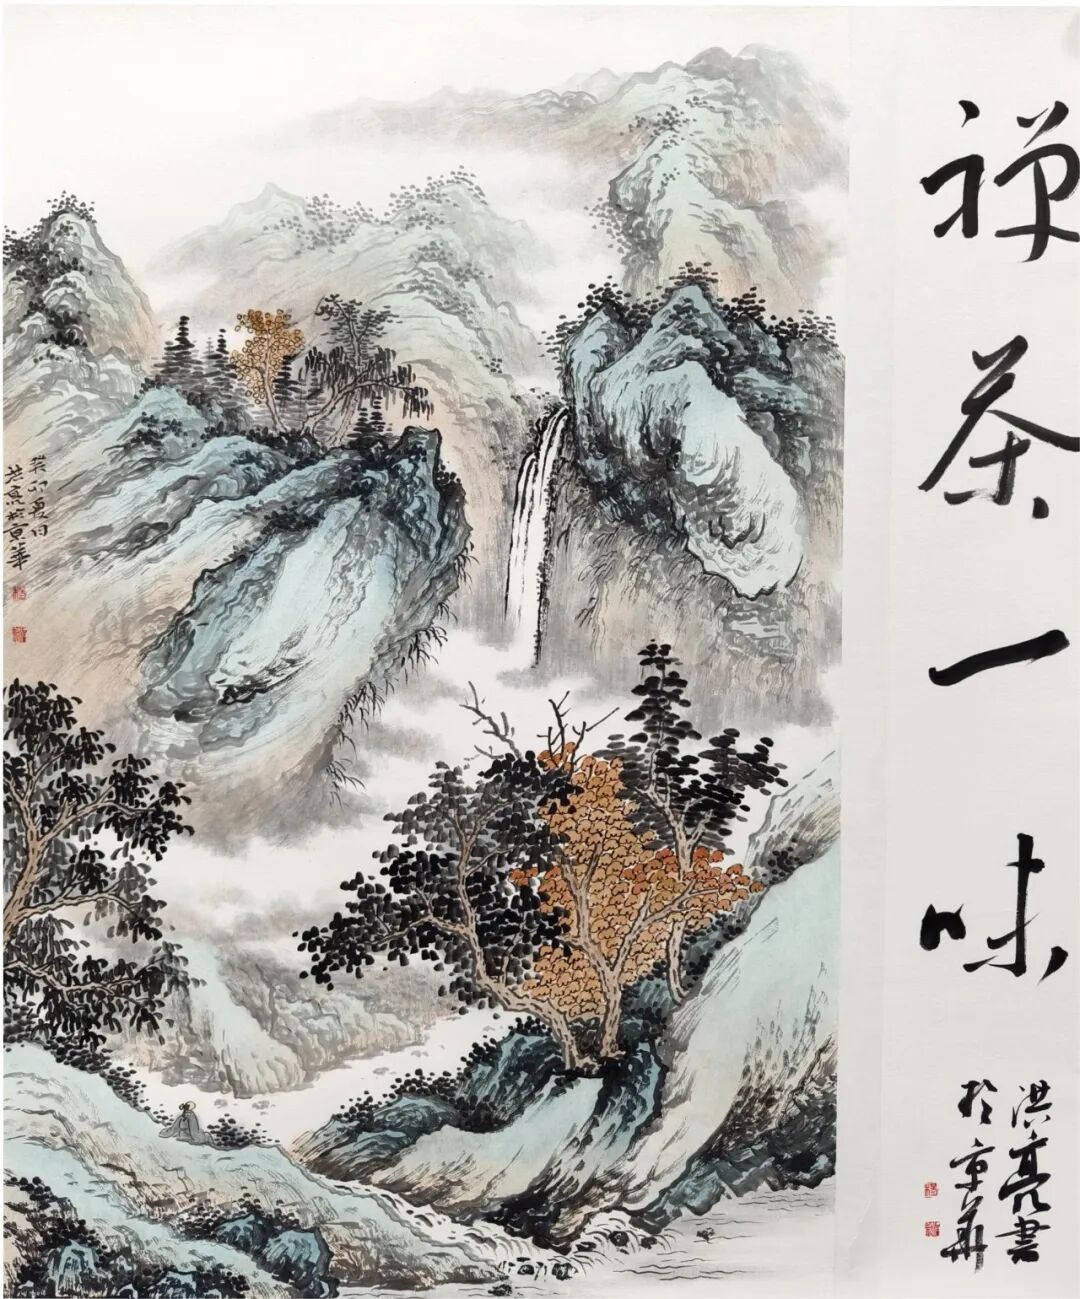 禅茶一味
洪亮書
於京華
癸卯夏月
洪亮於京華